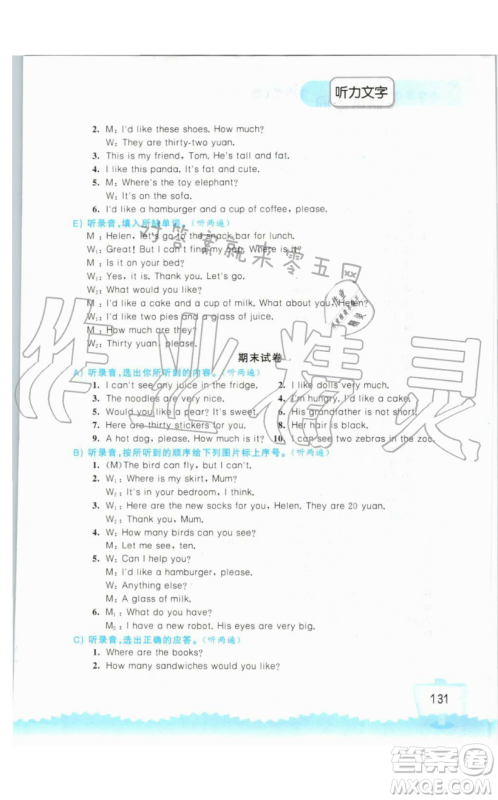 听力文字
2. M: I'd like these shoes. How much?
W: They are thirty-two yuan.
3. This is my friend, Tom. He's tall and fat.
4. I like this panda. It's fat and cute.
5. M: Where's the toy elephant?
W: It's on the sofa.
6. I'd like a hamburger and a cup of coffee, please.
E) 听录音,填入所缺单词。(听两遍)
M : Helen, let's go to the snack bar for lunch.
W₁: Great! But I can't find my cap. Is it
M : Yes, it is. Thank you. Let's go.
W₂: What would you like?
M : I'd like a cake and a cup of milk. What about you, Helen?
W₁: I'd like two pies and a glass of juice.
M : How much are they?
W₂: Thirty yuan, please.
对答案就来零五网
期末试卷
A) 听录音,选出你所听到的内容。(听两遍)
1. I can't see any juice in the fridge.
2. I like dolls very much.
3. The noodles are very nice.
4. I'm hungry. I'd like a cake.
5. Would you like a pie? It's sweet.
6. His grandfather is not short.
7. Here are thirty stickers for you.
8. Her hair is black.
9. A hot dog, please. How much is it?
10. I can see two zebras in the zoo.
B) 听录音,按所听到的顺序给下列图片标上序号。(听两遍)
1. (M)The bird can fly, but I can't.
2. W₁: Where is my skirt, Mum?
W₂: It's in your bedroom, I think.
3. W₁: Here are the new socks for you, Helen. They are 20 yuan.
W₂: Thank you, Mum.
4. W: How many birds can you see?
M: Let me see, ten.
5. W: Can I help you?
M: I'd like a hamburger, please.
W: Anything else?
M: A glass of milk.
6. W₁: What do you have?
W₂: I have a new robot. His eyes are very big.
C) 听录音,选出正确的应答。(听两遍)
1. Where are the books?
2. How many sandwiches would you like?
131
作业精灵
答案圈
MXQE.COM